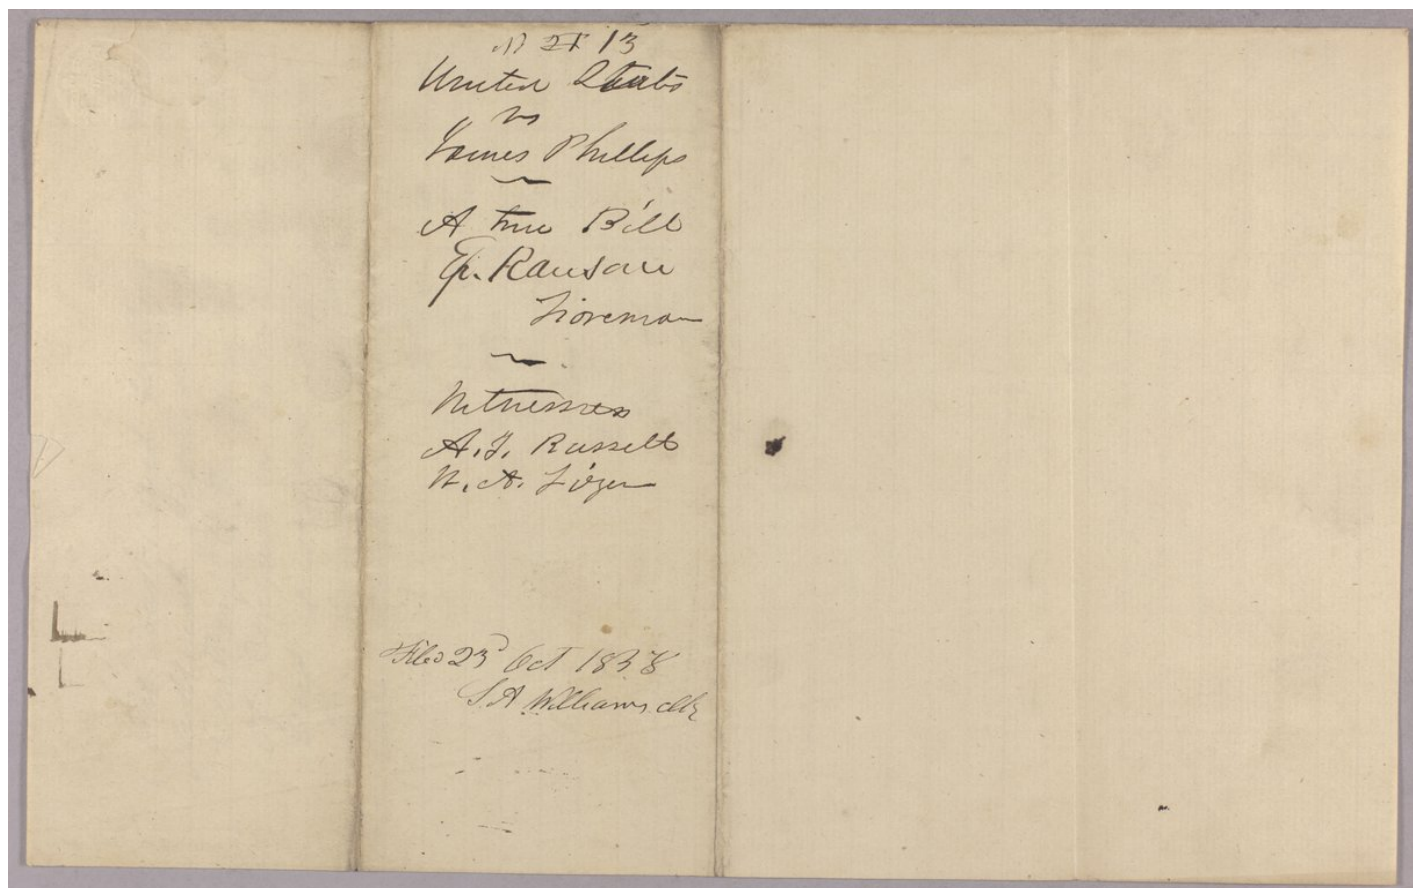 13
United States
vs
James Phillips
A true Bill
Ep. Ransom
Foreman
Witnesses
A. J. Russell
W. A.
Filed 23d Oct 1858
S A Williams clk